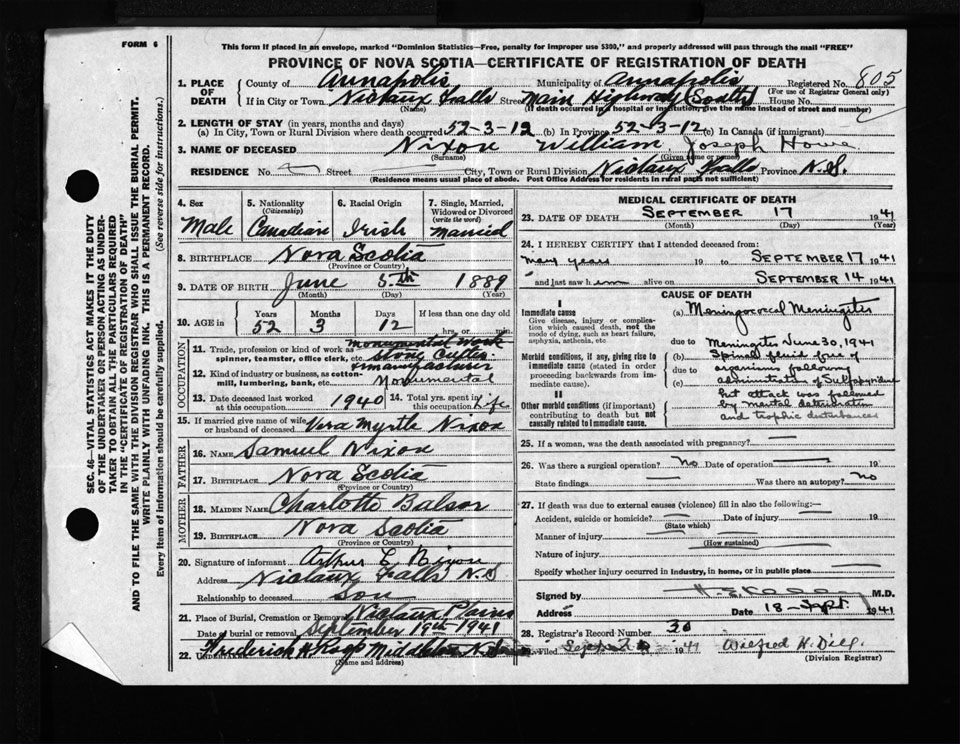 FORM 6
This form if placed in an envelope, marked "Dominion Statistics—Free, penalty for improper use $300," and properly addressed will pass through the mail "FREE"
PROVINCE OF NOVA SCOTIA—CERTIFICATE OF REGISTRATION OF DEATH
SEC. 46—VITAL STATISTICS ACT MAKES IT THE DUTY
OF THE UNDERTAKER OR PERSON ACTING AS UNDER-
TAKER TO OBTAIN ALL THE PARTICULARS REQUIRED
IN THE "CERTIFICATE OF REGISTRATION OF DEATH"
AND TO FILE THE SAME WITH THE DIVISION REGISTRAR WHO SHALL ISSUE THE BURIAL PERMIT.
WRITE PLAINLY WITH UNFADING INK. THIS IS A PERMANENT RECORD.
Every item of information should be carefully supplied. (See reverse side for instructions.)
1. PLACE OF DEATH County of Annapolis Municipality of Annapolis Registered No. 805
(For use of Registrar General only)
If in City or Town Nictaux Falls Street Main Highway (South) House No.
(Name) (If death occurred in hospital or institution, give the name instead of street and number)
2. LENGTH OF STAY (in years, months and days)
(a) In City, Town or Rural Division where death occurred 52-3-12 (b) In Province 52-3-12 (c) In Canada (if immigrant)
3. NAME OF DECEASED Nixon William Joseph Howe
(Surname) (Given name or names)
RESIDENCE No. Street City, Town or Rural Division Nictaux Falls Province N.S.
(Residence means usual place of abode. Post Office Address for residents in rural parts not sufficient)
4. Sex Male
5. Nationality (Citizenship) Canadian
6. Racial Origin Irish
7. Single, Married, Widowed or Divorced (write the word) Married
8. BIRTHPLACE Nova Scotia
(Province or Country)
9. DATE OF BIRTH June 5th 1889
(Month) (Day) (Year)
10. AGE in Years Months Days If less than one day old
52 3 12 hrs. or min.
OCCUPATION
11. Trade, profession or kind of work as spinner, teamster, office clerk, etc. Monumental Work
Stone Cutter
12. Kind of industry or business, as cotton-mill, lumbering, bank, etc. manufacturer
Monumental
13. Date deceased last worked at this occupation 1940 14. Total yrs. spent in this occupation Life
15. If married give name of wife or husband of deceased Vera Myrtle Nixon
FATHER
16. NAME Samuel Nixon
17. BIRTHPLACE Nova Scotia
(Province or Country)
MOTHER
18. MAIDEN NAME Charlotte Balsor
19. BIRTHPLACE Nova Scotia
(Province or Country)
20. Signature of informant Arthur E Nixon
Address Nictaux Falls N.S
Relationship to deceased Son
21. Place of Burial, Cremation or Removal Nictaux Plains
Date of burial or removal September 19th-1941
22. UNDERTAKER Frederick H Middleton
(Name and address)
MEDICAL CERTIFICATE OF DEATH
23. DATE OF DEATH September 17 1941
(Month) (Day) (Year)
24. I HEREBY CERTIFY that I attended deceased from:
many years 19 to September 17 1941
and last saw him alive on September 14 1941
CAUSE OF DEATH
I
Immediate cause
Give disease, injury or complication which caused death, not the mode of dying, such as heart failure, asphyxia, asthenia, etc.
(a) Meningococcal Meningitis
due to
Morbid conditions, if any, giving rise to immediate cause (stated in order proceeding backwards from immediate cause).
Meningitis June 30, 1941
(b) Spinal fluid free of
organisms following
(c) administration of Sulfapyridine
II
Other morbid conditions (if important) contributing to death but not causally related to immediate cause.
but attack was followed
by mental deterioration
and trophic disturbances
25. If a woman, was the death associated with pregnancy?
26. Was there a surgical operation? No Date of operation 19
State findings Was there an autopsy? No
27. If death was due to external causes (violence) fill in also the following:—
Accident, suicide or homicide? Date of injury 19
(State which)
Manner of injury
(How sustained)
Nature of injury
Specify whether injury occurred in industry, in home, or in public place
Signed by M.D.
Address Date 18-Sept. 1941
28. Registrar's Record Number 30
Filed Sept 1941 Wilfred H. Dill
(Division Registrar)